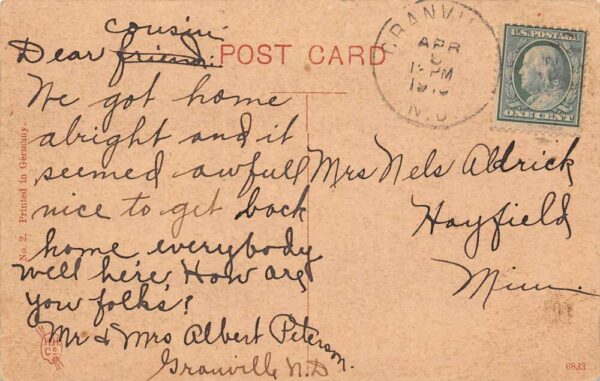 cousin
Dear friend:
POST CARD
We got home
alright and it
seemed awfull
nice to get back
home, everybody
well here, How are
you folks?
Mr & Mrs Albert Peterson.
Granville N.D
GRANVILLE
APR
12 PM
N.D.
U.S. POSTAGE
ONE CENT
Mrs Nels Aldrick
Hayfield
Minn.
No. 2. Printed in Germany.
6833